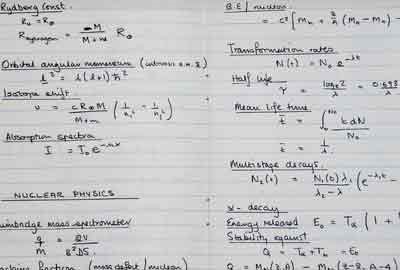 Rydberg Const.
R∞ = R∞
R Hydrogen = M / M+m R∞
Orbital angular momentum
l² = l(l+1)ħ²
Isotope shift
ν = cR∞M / M+m (1/n₁² - 1/n₂²)
Absorption spectra
I = I₀e
NUCLEAR PHYSICS
mass spectrometer
q/M = 2V / B²DS
fraction (mass defect / nucleon)
B.E / nucleon
= c² [Mn + Z/A (MH - Mn) -
Transformation rates
N(t) = N₀ e^-λt
Half life
τ = loge2 / λ = 0.693
Mean life time
t̄ = ∫ t dN / N₀
t̄ = 1/λ
Multistage decays
N₂(t) = N₁(0)λ₁ / λ₂ - λ (e^-λ₁t -
α - decay
Energy released E₀ = Tα (1 +
Stability against
Q = Tα + Tb = E₀
Q = (Z,A) - (Z-2, A-4)